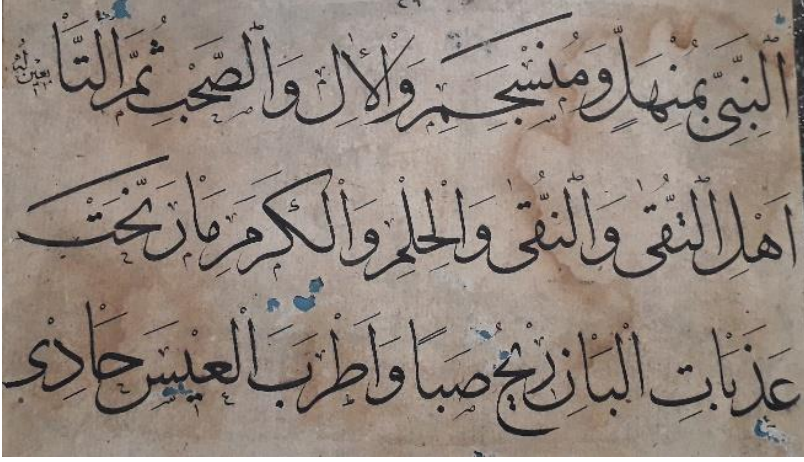 اَلنَّبِىِّ بِمُنْهَلٍّ وَمُنْسَجِمِ وَالْاٰلِ وَالصَّحْبِ ثُمَّ التَّابِعِينَ لَهُمْ
اَهْلِ التُّقٰى وَالنُّقٰى وَالْحِلْمِ وَالْكَرَمِ مَا رَنَّحَتْ
عَذَبَاتِ الْبَانِ رِيحُ صَبًا وَاَطْرَبَ الْعِيسَ حَادِى